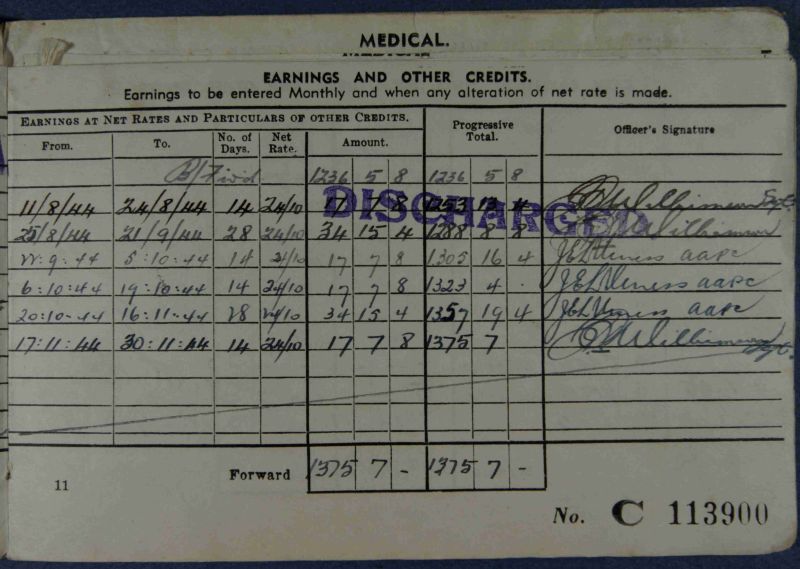 MEDICAL.
EARNINGS AND OTHER CREDITS.
Earnings to be entered Monthly and when any alteration of net rate is made.
EARNINGS AT NET RATES AND PARTICULARS OF OTHER CREDITS. Progressive Total. Officer's Signature
From. To. No. of Days. Net Rate. Amount.
B/Fwd 1236 5 8 1236 5 8
DISCHARGED
11/8/44 24/8/44 14 24/10 17 7 8 1253 13 4 Williamson Sgt.
25/8/44 21/9/44 28 24/10 34 15 4 1288 8 8 Williamson
22.9.44 5:10:44 14 24/10 17 7 8 1305 16 4 AAPC
6:10:44 19:10:44 14 24/10 17 7 8 1323 4 . AAPC
20:10:44 16:11:44 28 24/10 34 15 4 1357 19 4 AAPC
17:11:44 30:11:44 14 24/10 17 7 8 1375 7 Williamson Sgt.
Forward 1375 7 - 1375 7 -
11
No. C 113900